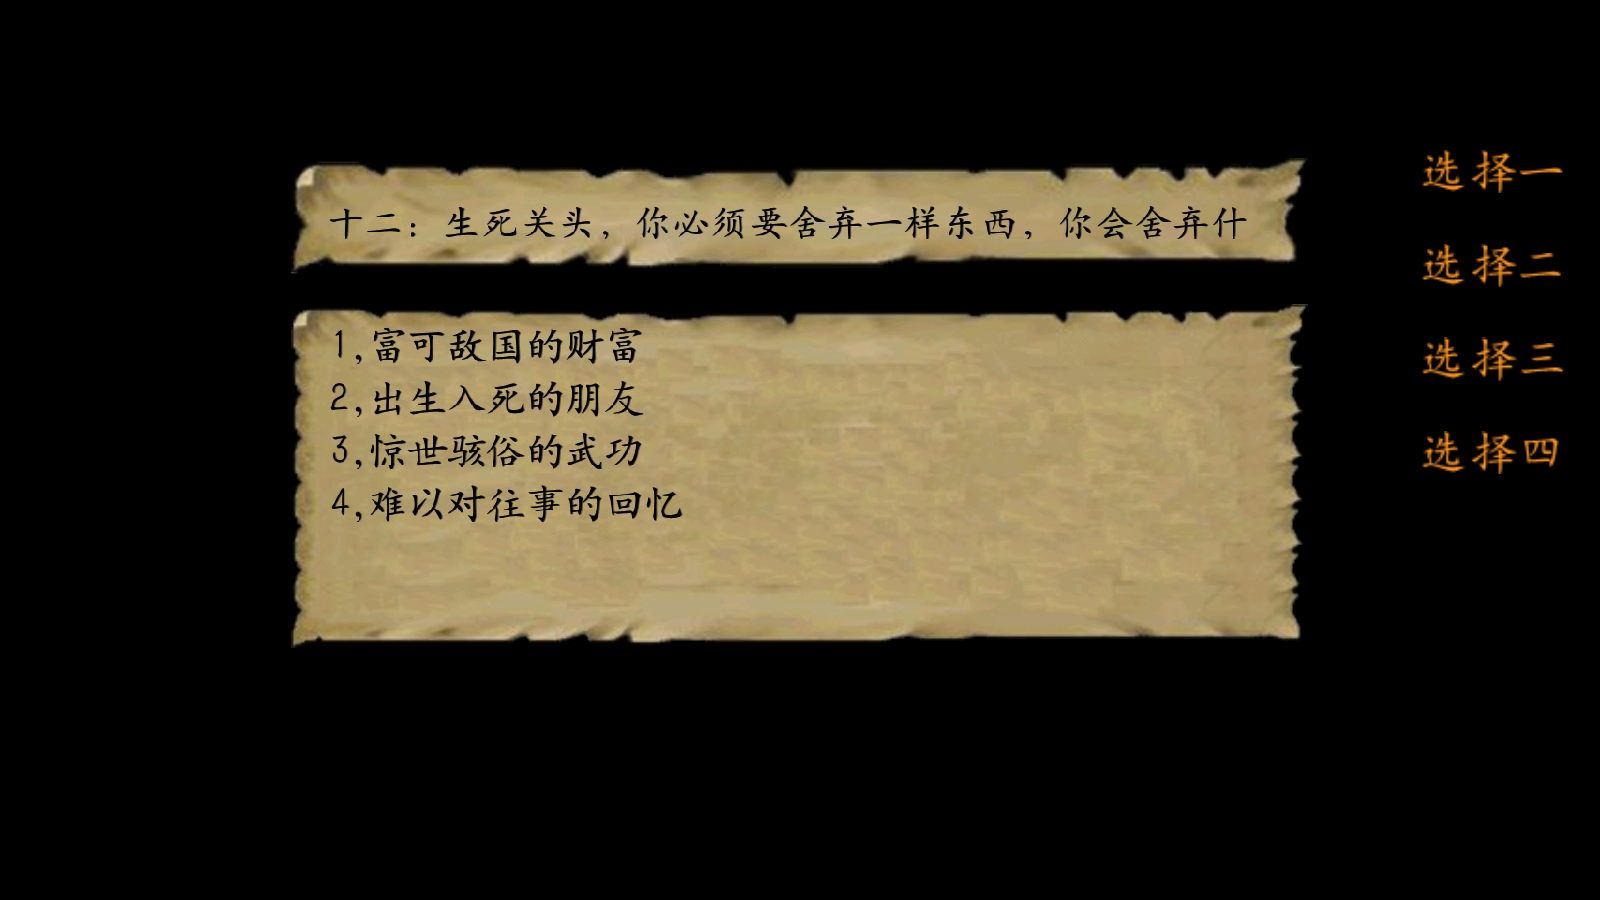 十二：生死关头，你必须要舍弃一样东西，你会舍弃什
1,富可敌国的财富
2,出生入死的朋友
3,惊世骇俗的武功
4,难以对往事的回忆
选择一
选择二
选择三
选择四